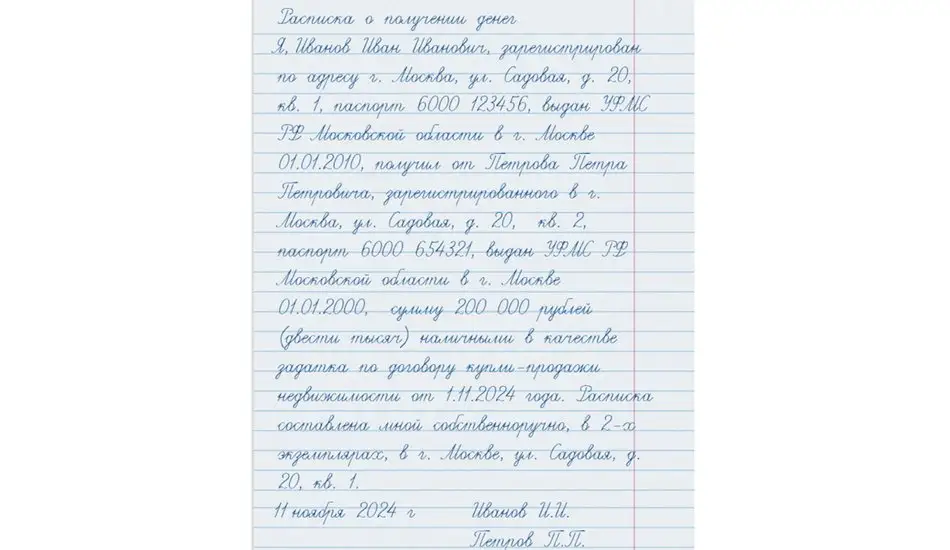 Расписка о получении денег
Я, Иванов Иван Иванович, зарегистрирован
по адресу г. Москва, ул. Садовая, д. 20,
кв. 1, паспорт 6000 123456, выдан УФМС
РФ Московской области в г. Москве
01.01.2010, получил от Петрова Петра
Петровича, зарегистрированного в г.
Москва, ул. Садовая, д. 20, кв. 2,
паспорт 6000 654321, выдан УФМС РФ
Московской области в г. Москве
01.01.2000, сумму 200 000 рублей
(двести тысяч) наличными в качестве
задатка по договору купли-продажи
недвижимости от 1.11.2024 года. Расписка
составлена мной собственноручно, в 2-х
экземплярах, в г. Москве, ул. Садовая, д.
20, кв. 1.
11 ноября 2024 г Иванов И.И.
Петров П.П.